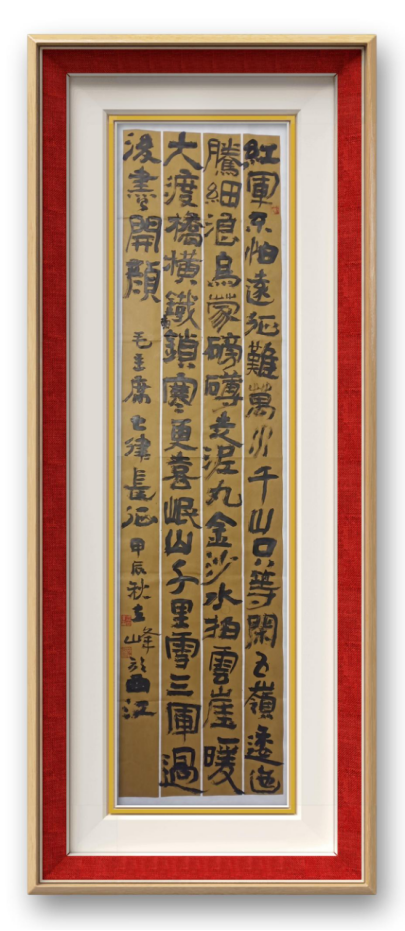 紅軍不怕遠征難萬水千山只等閑五嶺逶迤
騰細浪烏蒙磅礴走泥丸金沙水拍雲崖暖
大渡橋橫鐵鎖寒更喜岷山千里雪三軍過
後盡開顏 毛主席七律長征 甲辰秋立峰於西江